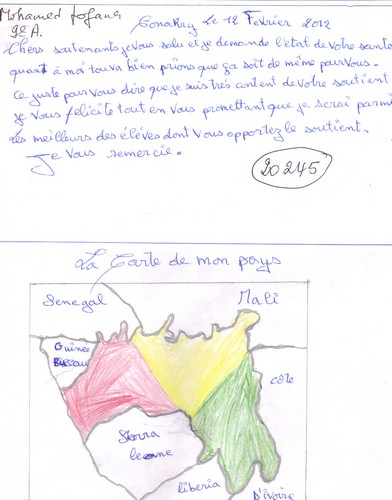 Mohamed Fofana
9e A.
Conakry Le 12 Fevrier 2012
Chers soutenants je vous salu et je demande l'état de votre santé
quant à moi tout va bien prions que ça soit de même pour vous.
Ce juste pour vous dire que je suis très content de votre soutient
je vous félicite tout en vous promettant que je serai parmi
Les meilleurs des élèves dont vous opportez le soutient.
Je vous remercie.
20245
La Carte de mon pays
Senegal
Mali
Guinee
Bissau
côte
Sierra
leone
liberia
D'ivoire